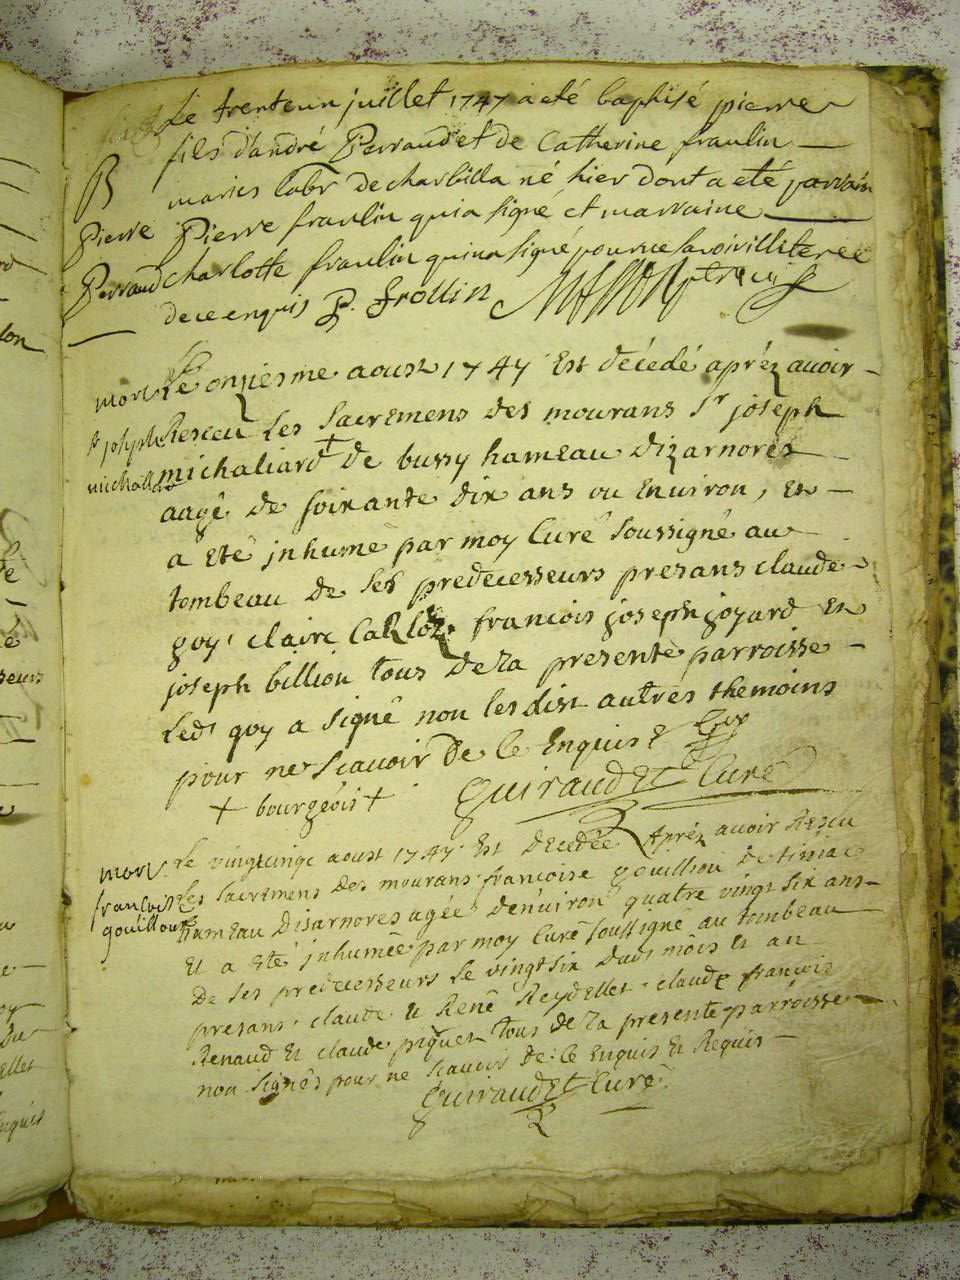 Le trenteun juillet 1747 a eté baptisé pierre
fils d'andré Perraud et de Catherine fraulin
B
mariés labr de charbilla né hier dont a eté parrain
Pierre
Pierre fraulin qui a signé et marraine
Perraud
charlotte fraulin qui n'a signé pour ne savoir illiterée
de ce enquis P. frollin
mort
Le onziesme aoust 1747 Est décédé apréz auoir
sr joseph
Resceu les Sacremens des mourans Sr joseph
michaliard
michaliard + de bussy hameau dizarnores
aagé de soixante dix ans ou Enuiron, et
a Eté jnhumé par moy Curé soussigné au
tombeau de ses predecesseurs presans claude
goy, claire francois joseph joyard et
joseph billion tous de La presente parroisse
Led goy a signé non les dist autres themoins
pour ne Scauoir De Ce Enquis
+ bourgeois +
Guiraudet Curé
mort
Le vingtcinq aoust 1747 Est décedée Apréz auoir Resceu
francoise
Les Sacremens des mourans francoise gouillion de
gouillon
hameau Disarnores agée d'enuiron quatre vingt six ans
Et a Eté jnhumée par moy Curé soussigné au tombeau
De ses predecesseurs Le vingt six dudt mois et an
presans claude Et René Reydellet claude francois
Renaud Et claude piquet tous de La presente parroisse
non signés pour ne scauoir de ce Enquis Et Requis
Guiraudet Curé